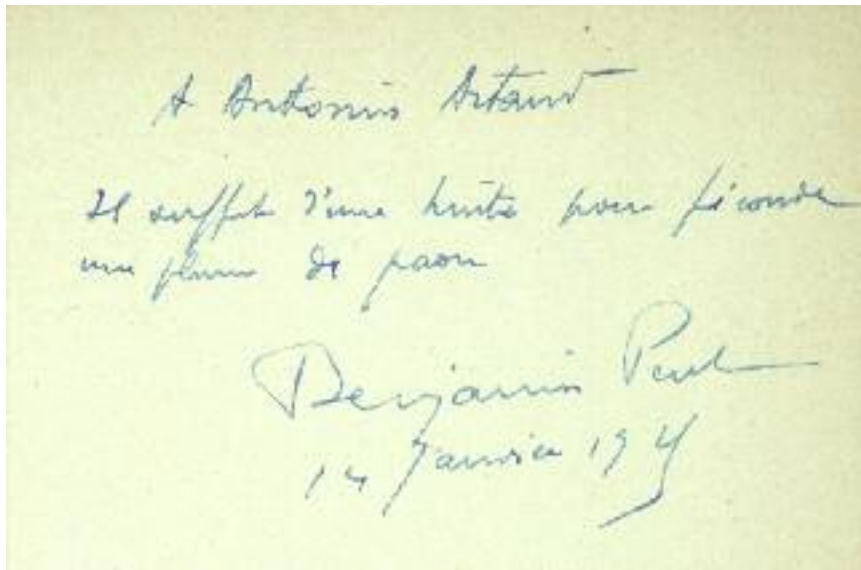 A Antonin Artaud
Il suffit d'une huître pour féconder
une plume de paon
Benjamin Péret
14 Janvier